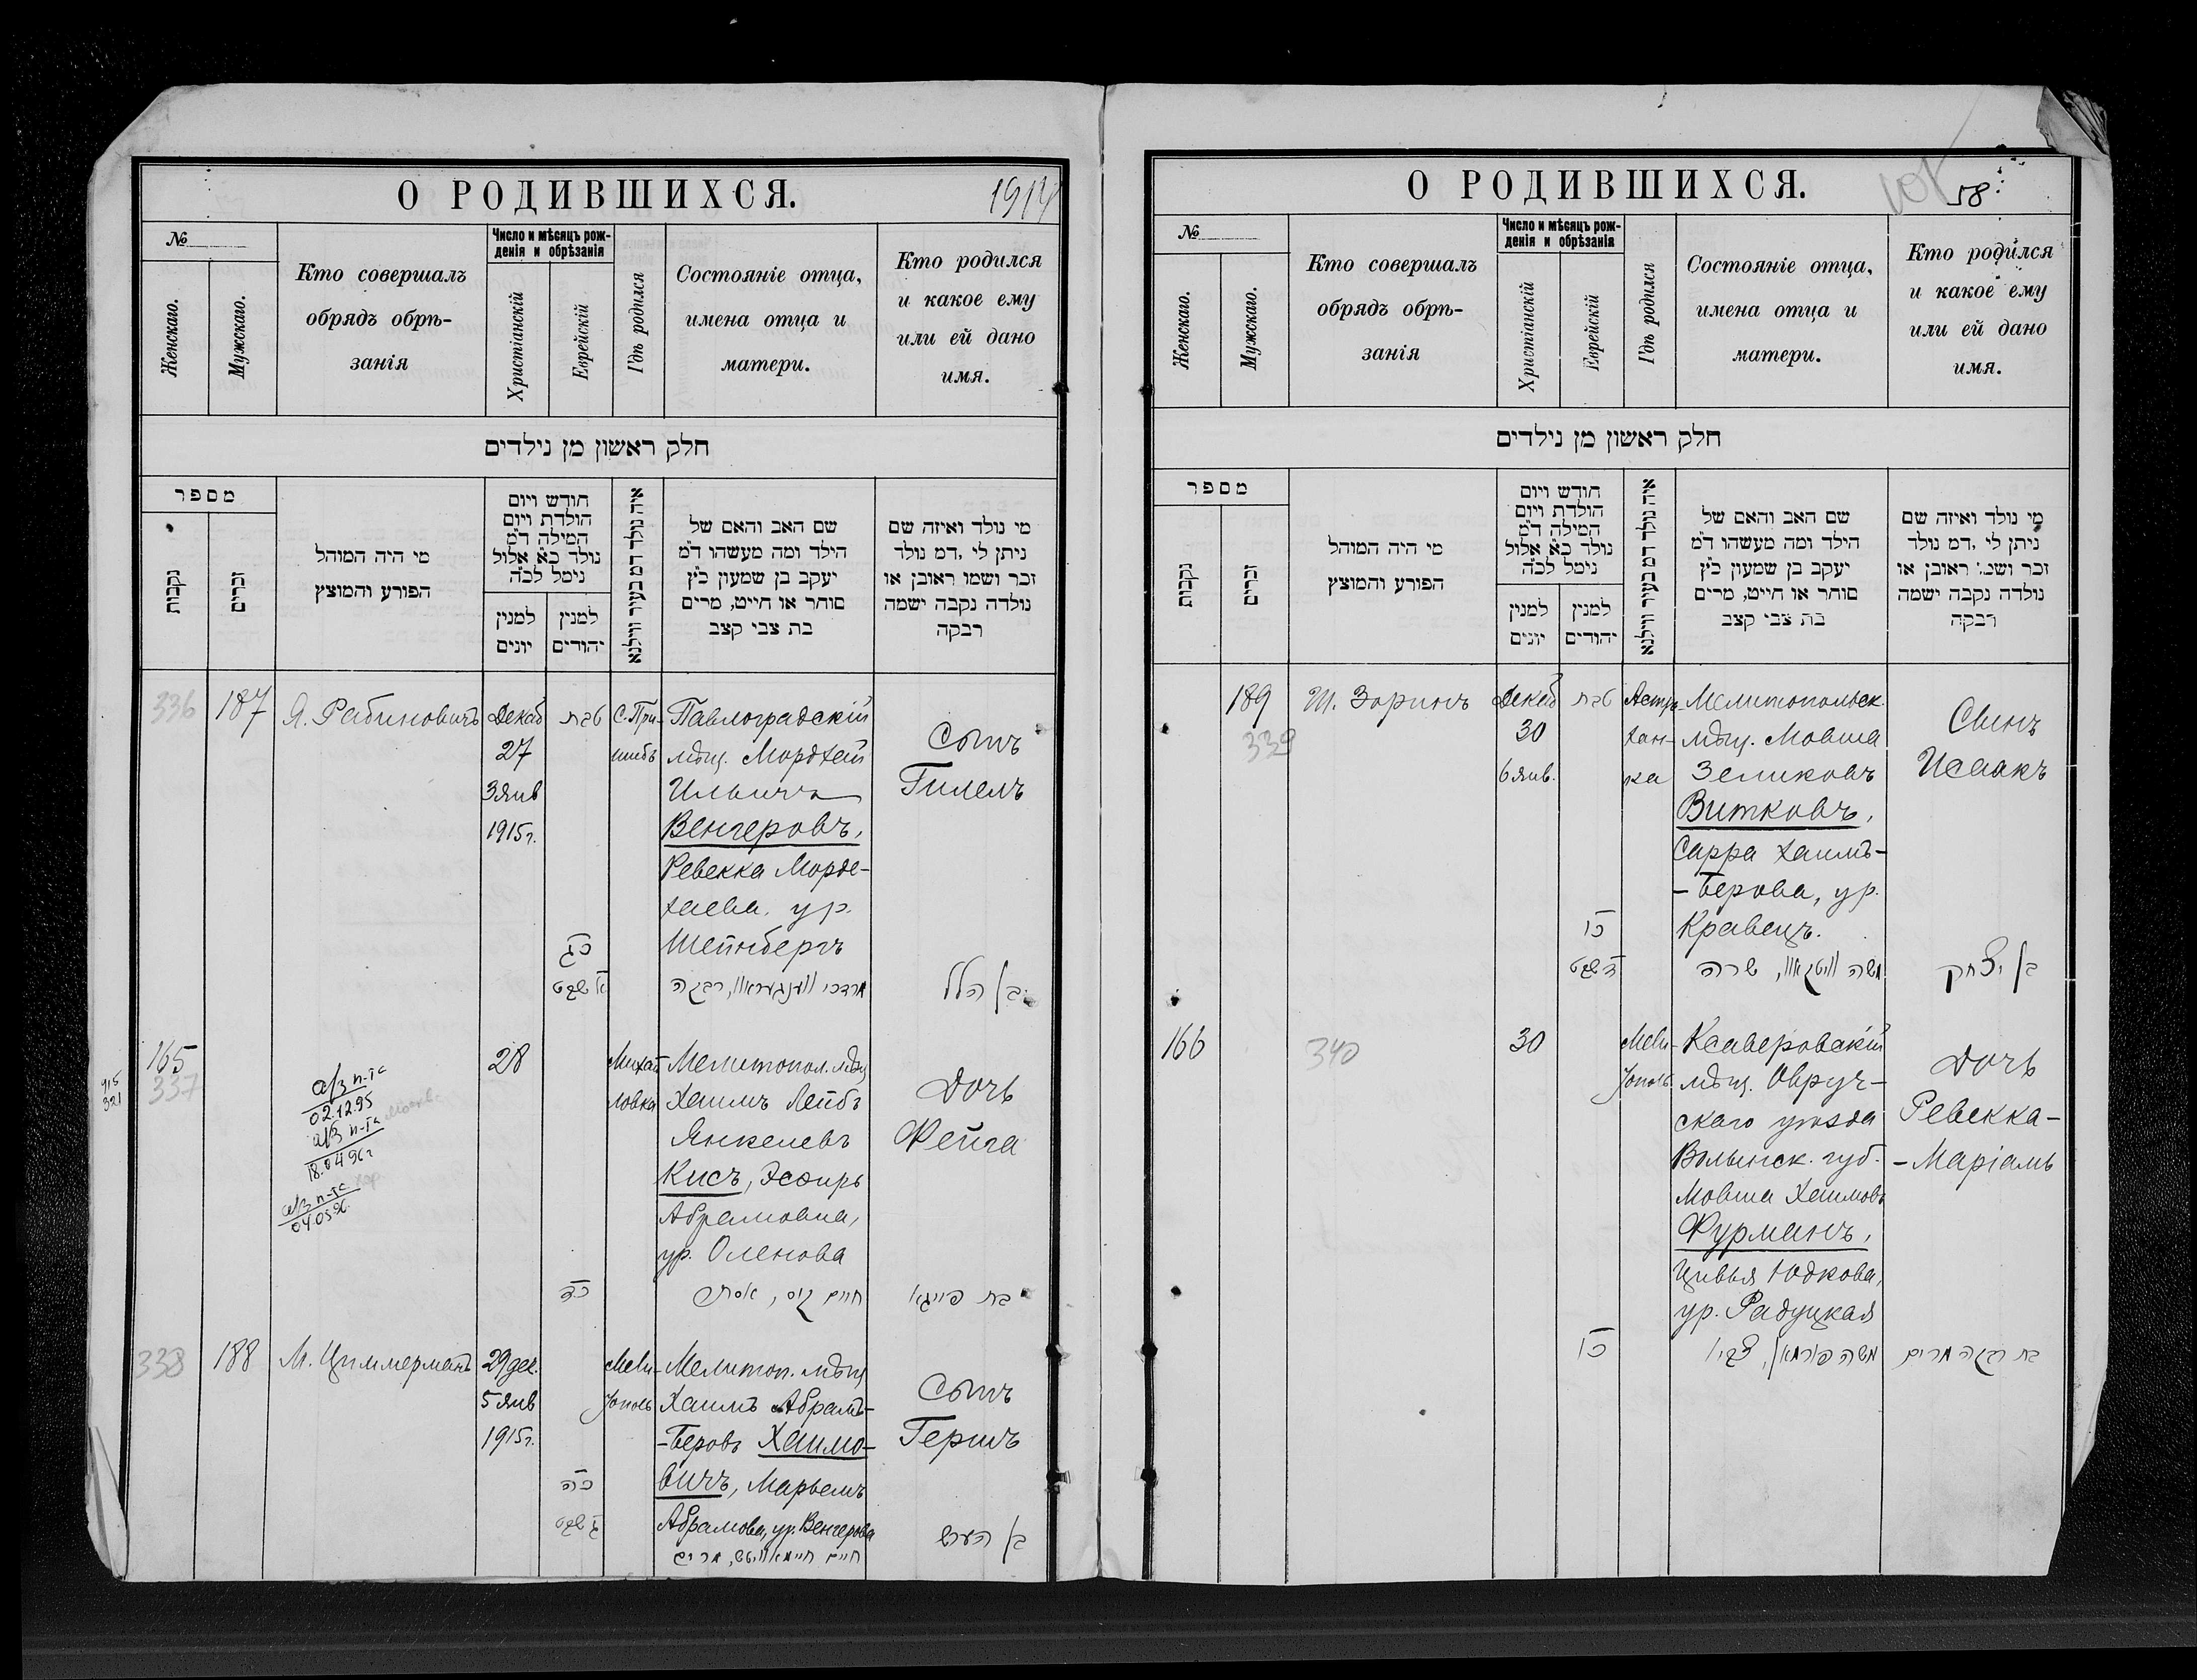 О РОДИВШИХСЯ.
1914
№
Женскаго.
Мужскаго.
Кто совершалъ
обрядъ обрѣ-
занія
Число и мѣсяцъ рож-
денія и обрѣзанія
Христіанскій
Еврейскій
Гдѣ родился
Состояніе отца,
имена отца и
матери.
Кто родился
и какое ему
или ей дано
имя.
חלק ראשון מן נילדים
מספר
נקבות
זכרים
מי היה המוהל
הפורע והמוצץ
חודש ויום
הולדת ויום
המילה ד״מ
נולד כ״א אלול
נימל לכ״ה
למנין
יונים
למנין
יהודים
איה נולד דמ בעיר ווילנא
שם האב והאם של
הילד ומה מעשהו ד״מ
יעקב בן שמעון כ״ץ
סוחר או חייט, מרים
בת צבי קצב
מי נולד ואיזה שם
ניתן לי, דמ נולד
זכר ושמו ראובן או
נולדה נקבה ישמה
רבקה
336
187
Я. Рабиновичъ
Декаб
27
3 янв
1915 г.
טבת
כג
א שבט
С. При-
шибъ
Павлоградскій
мѣщ. Мордхей
Ильичъ
Венгеровъ,
Ревекка Морде-
хаева, ур.
Шейнбергъ
מרדכי ווענגעראוו, רבקה
Сынъ
Гилелъ
בן הלל
915
321
165
337
а/з п-та
02.12.95
а/з п-та Москва
18.04 96 г
а/з п-та
04.05.96.
28
כד
Михай
ловка
Мелитопол. мѣщ
Хаимъ Лейбъ
Янкелевъ
Кисъ, Эсѳирь
Абрамовна,
ур. Оленова
חיים קיס, אסתר
Дочь
Фейга
בת פייגא
338
188
М. Циммерманъ
29 дек.
5 янв
1915 г.
כה
ג שבט
Мели-
тополь
Мелитоп. мѣщ
Хаимъ Абрамъ-
-Беровъ Хаимо-
вичъ, Марьемъ
Абрамова, ур. Венгерова
חיים חיימאוויטש, מרים
Сынъ
Гершъ
בן הערש
О РОДИВШИХСЯ.
58
№
Женскаго.
Мужскаго.
Кто совершалъ
обрядъ обрѣ-
занія
Число и мѣсяцъ рож-
денія и обрѣзанія
Христіанскій
Еврейскій
Гдѣ родился
Состояніе отца,
имена отца и
матери.
Кто родился
и какое ему
или ей дано
имя.
חלק ראשון מן נילדים
מספר
נקבות
זכרים
מי היה המוהל
הפורע והמוצץ
חודש ויום
הולדת ויום
המילה ד״מ
נולד כ״א אלול
נימל לכ״ה
למנין
יונים
למנין
יהודים
איה נולד דמ בעיר ווילנא
שם האב והאם של
הילד ומה מעשהו ד״מ
יעקב בן שמעון כ״ץ
סוחר או חייט, מרים
בת צבי קצב
מי נולד ואיזה שם
ניתן לי, דמ נולד
זכר ושמו ראובן או
נולדה נקבה ישמה
רבקה
189
339
Ш. Зоринъ
Декаб
30
6 янв.
טבת
כו
ד שבט
Астра-
хан-
ка
Мелитопольск.
мѣщ. Мовша
Зеликовъ
Витковъ,
Сарра Хаимъ-
-Берова, ур.
Кравецъ.
משה וויטקאוו, שרה
Сынъ
Исаакъ
בן יצחק
166
340
30
כו
Мели-
тополь
Ксаверовскій
мѣщ. Овруч-
скаго уѣзда
Волынск. губ.
Мовша Хаимовъ
Фурманъ,
Цивья Юдкова,
ур. Радуцкая
משה פורמאן, צביו
Дочь
Ревекка-
-Маріамъ
בת רבקה מרים